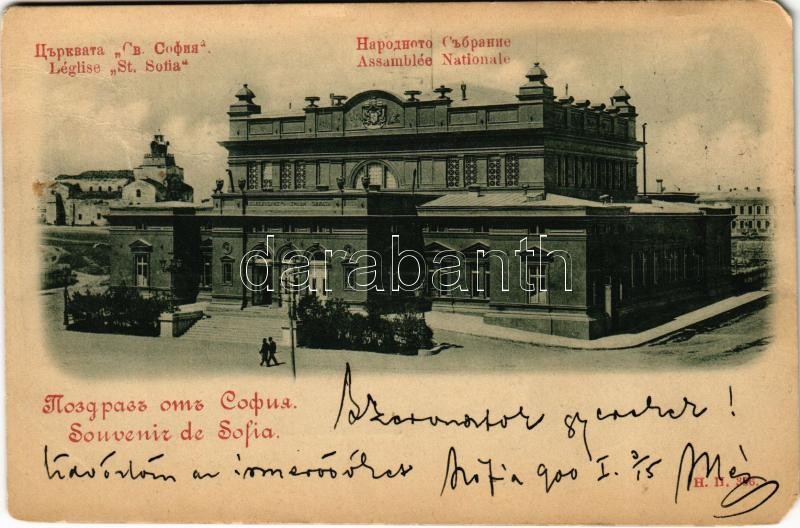 Църквата „Св. София“.
Léglise „St. Sofia“
Народното Събрание
Assamblée Nationale
darabanth
Поздравъ отъ София.
Souvenir de Sofia.
Szoronatok gyerekek!
Üdvözlöm az ismerősöket Szófia 900 I. 3/15
H. П. 396.